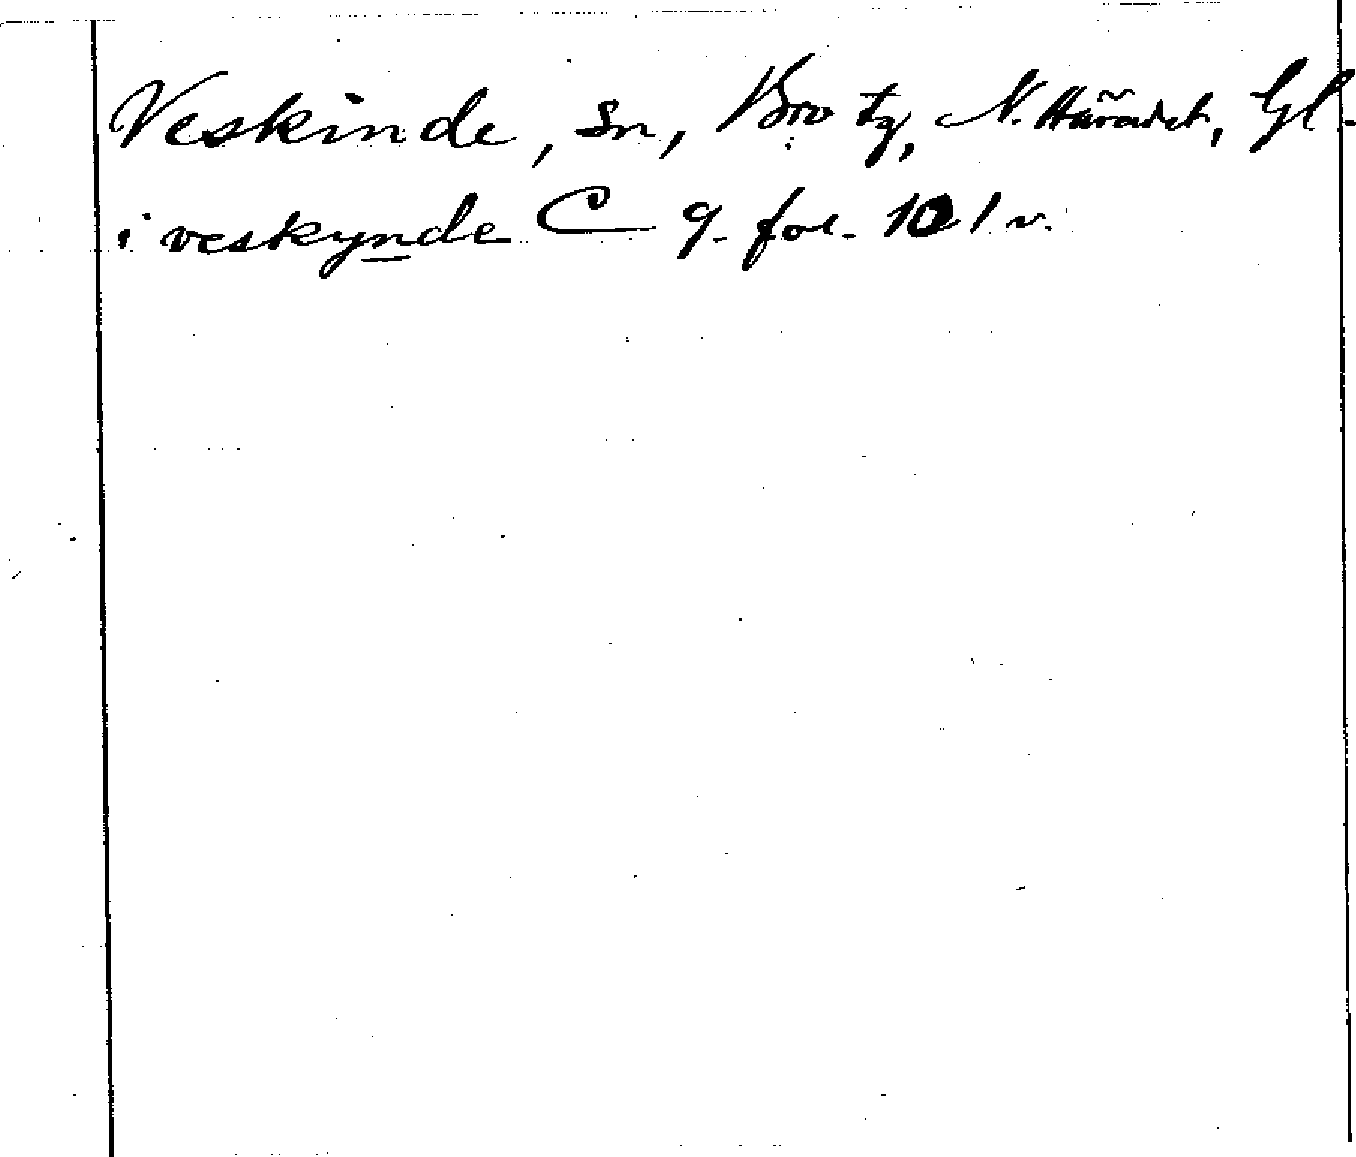 Veskinde, sn, Bro tg, N. Häradet, Gl.
i veskynde C 9. fol. 101 v.